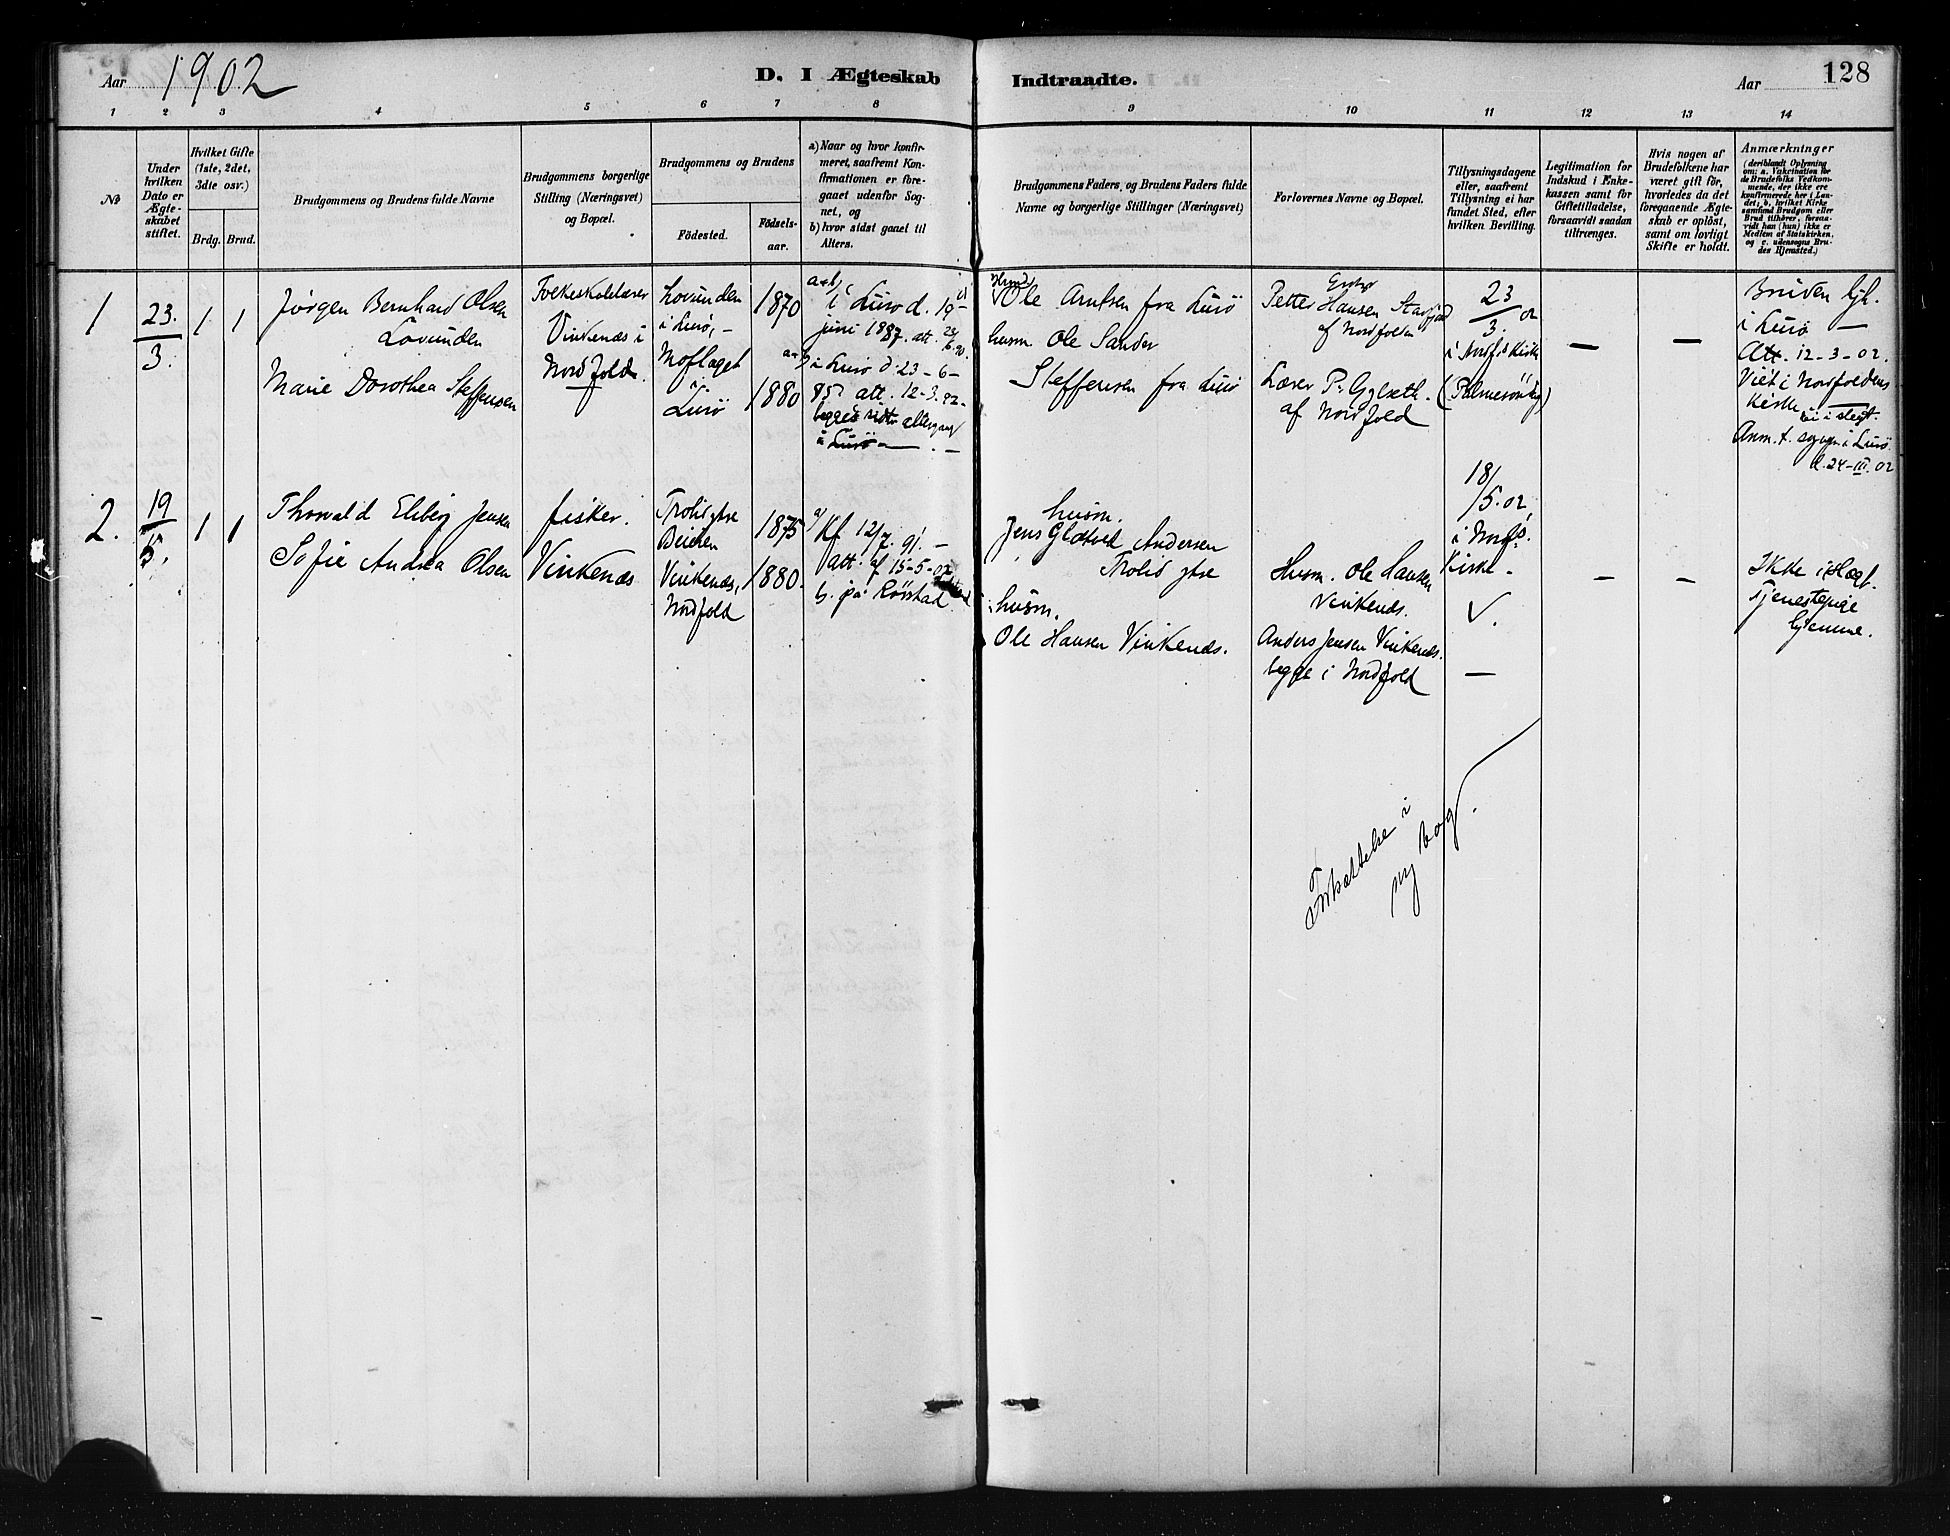 Aar 1902
D. I Ægteskab
Indtraadte.
Aar 128
1 2 3 4 5 6 7 8
9 10 11 12 13 14
№
Under
hvilken
Dato er
Ægte-
skabet
stiftet.
Hvilket Gifte
(1ste, 2det,
3dte osv.)
Brdg. Brud.
Brudgommens og Brudens fulde Navne
Brudgommens borgerlige
Stilling (Næringsvei)
og Bopæl.
Brudgommens og Brudens
Födested.
Födsels-
aar.
a) Naar og hvor konfir-
meret, saafremt Kon-
firmationen er fore-
gaaet udenfor Sog-
net, og
b) hvor sidst gaaet til
Alters.
Brudgommens Faders, og Brudens Faders fulde
Navne og borgerlige Stillinger (Næringsvei)
Forlovernes Navne og Bopæl.
Tillysningsdagene
eller, saafremt
Tillysning ei har
fundet Sted, efter
hvilken Bevilling.
Legitimation for
Indskud i Ænke-
kassen samt for
Giftetilladelse,
forsaavidt saadan
tiltrænges.
Hvis nogen af
Brudefolkene har
været gift för,
hvorledes da det
foregaaende Ægte-
skab er oplöst,
samt om lovligt
Skifte er holdt.
Anmærkninger
(deriblandt Oplysning
om: a. Vakcination for
de Brudefolks Vedkom-
mende, der ikke ere
konfirmerede her i Lan-
det; b, hvilket Kirke
samfund Brudgom eller
Brud tilhörer, forsaa-
vidt han (hun) ikke er
Medlem af Statskirken,
og c. udensogns Bru-
des Hjemsted.)
1
23.
3.
1 1
Jørgen Bernhard Olsen
Lovunden
Marie Dorothea Steffensen
Folkeskolelærer
Vinkenæs i
Nordfold.
Lovunden
i Lurø, -
Moflaget
i
Lurø
1870
1880
a+b
i Lurø d. 19
juni 1887. att.
i Lurø d 23-6-
95 att. 12-3.02-
begges sidste altergang
i Lurø
Ole Arntsen fra Lurø
husm Ole Sander
Steffensen fra Lurø
Petter Hansen
af Nordfolden
Lærer P.
af Nordfold
23
3. 02
i Nordf. Kirke
(Palmesøndag)
—
—
Bruden hjh.
i Lurø —
Att. 12-3-02.
Viet i Nordfoldens
Kirke ei i slegt.
Anm. t. sogn i Lurø
d. 24-III.02
2.
19
5.
1 1
Thorvald Jensen
Sofie Andrea Olsen
fisker.
Vinkenæs
Beieren
Vinkenæs,
Nordfold
1875
1880.
Kf 12/7. 91. -
att. af 15-5-02
b. på Rørstad
husm.
Jens Andersen
husm.
Ole Hansen Vinkenæs.
Husm. Ole Hansen
Vinkenæs.
Anders Jensen Vinkenæs.
begge i Nordfold
18/
/5. 02,
i Nordf.
Kirke -
—
–
–
Ikke i slægt.
Tjenestepige
hjemme.
Fortsættelse i
ny bog.